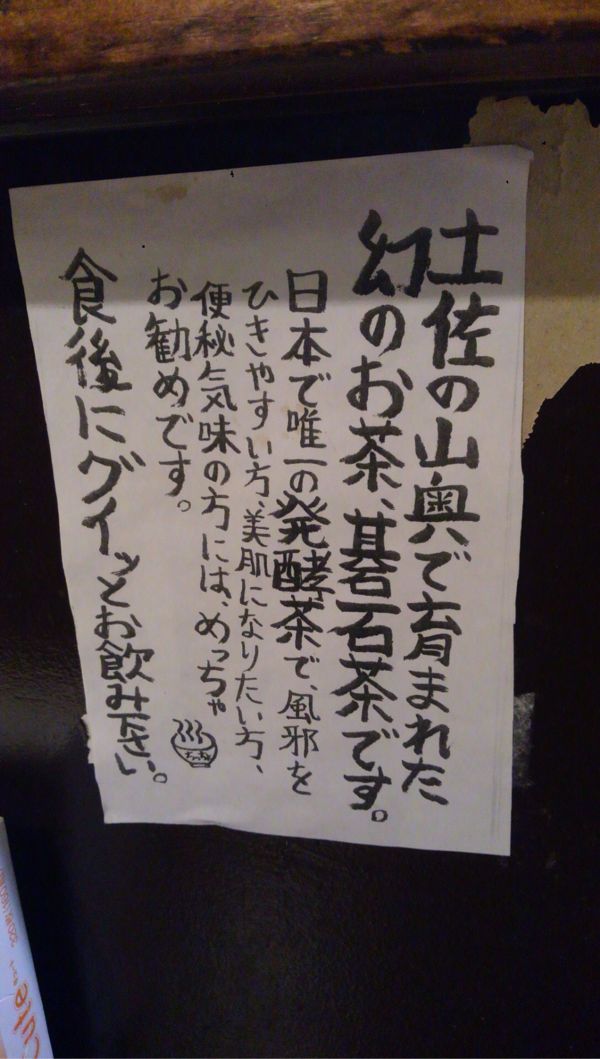 土佐の山奥で育まれた
幻のお茶、碁石茶です。
日本で唯一の発酵茶で、風邪を
ひきやすい方、美肌になりたい方、
便秘気味の方には、めっちゃ
お勧めです。
食後にグイッとお飲み下さい。
cute